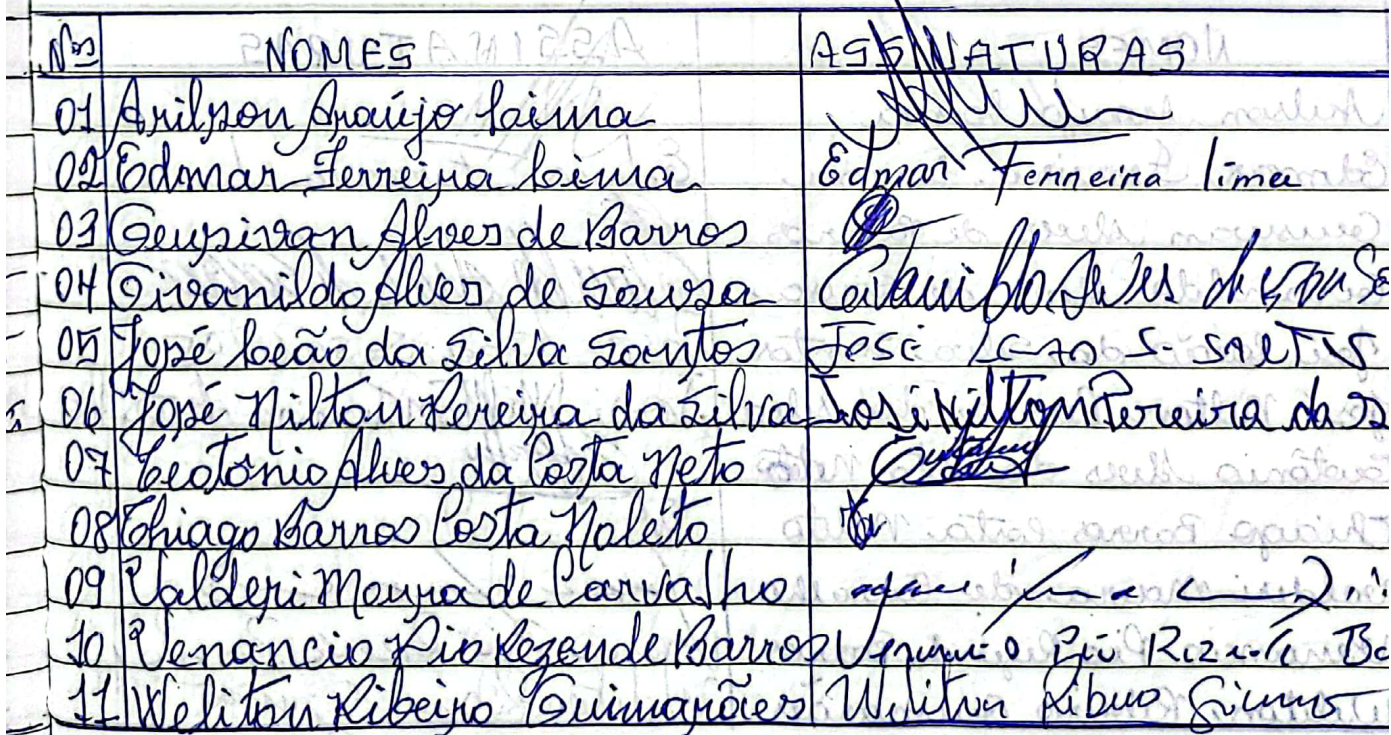 Nos NOMES ASSINATURAS
01 Arilson Araújo Lima
02 Edmar Ferreira Lima Edmar Ferreira lima
03 Geusivan Alves de Barros
04 Givanildo Alves de Sousa Givanildo Alves de Sousa
05 José Leão da Silva Santos José Leão S. Santos
06 José Nilton Pereira da Silva José Nilton Pereira da S
07 Teotônio Alves da Costa Neto
08 Thiago Barros Costa Noleto
09 Valderi Moura de Carvalho
10 Venancio Pio Rezende Barros Venancio Pio Rezende Ba
11 Weliton Ribeiro Guimarães Weliton Ribeiro